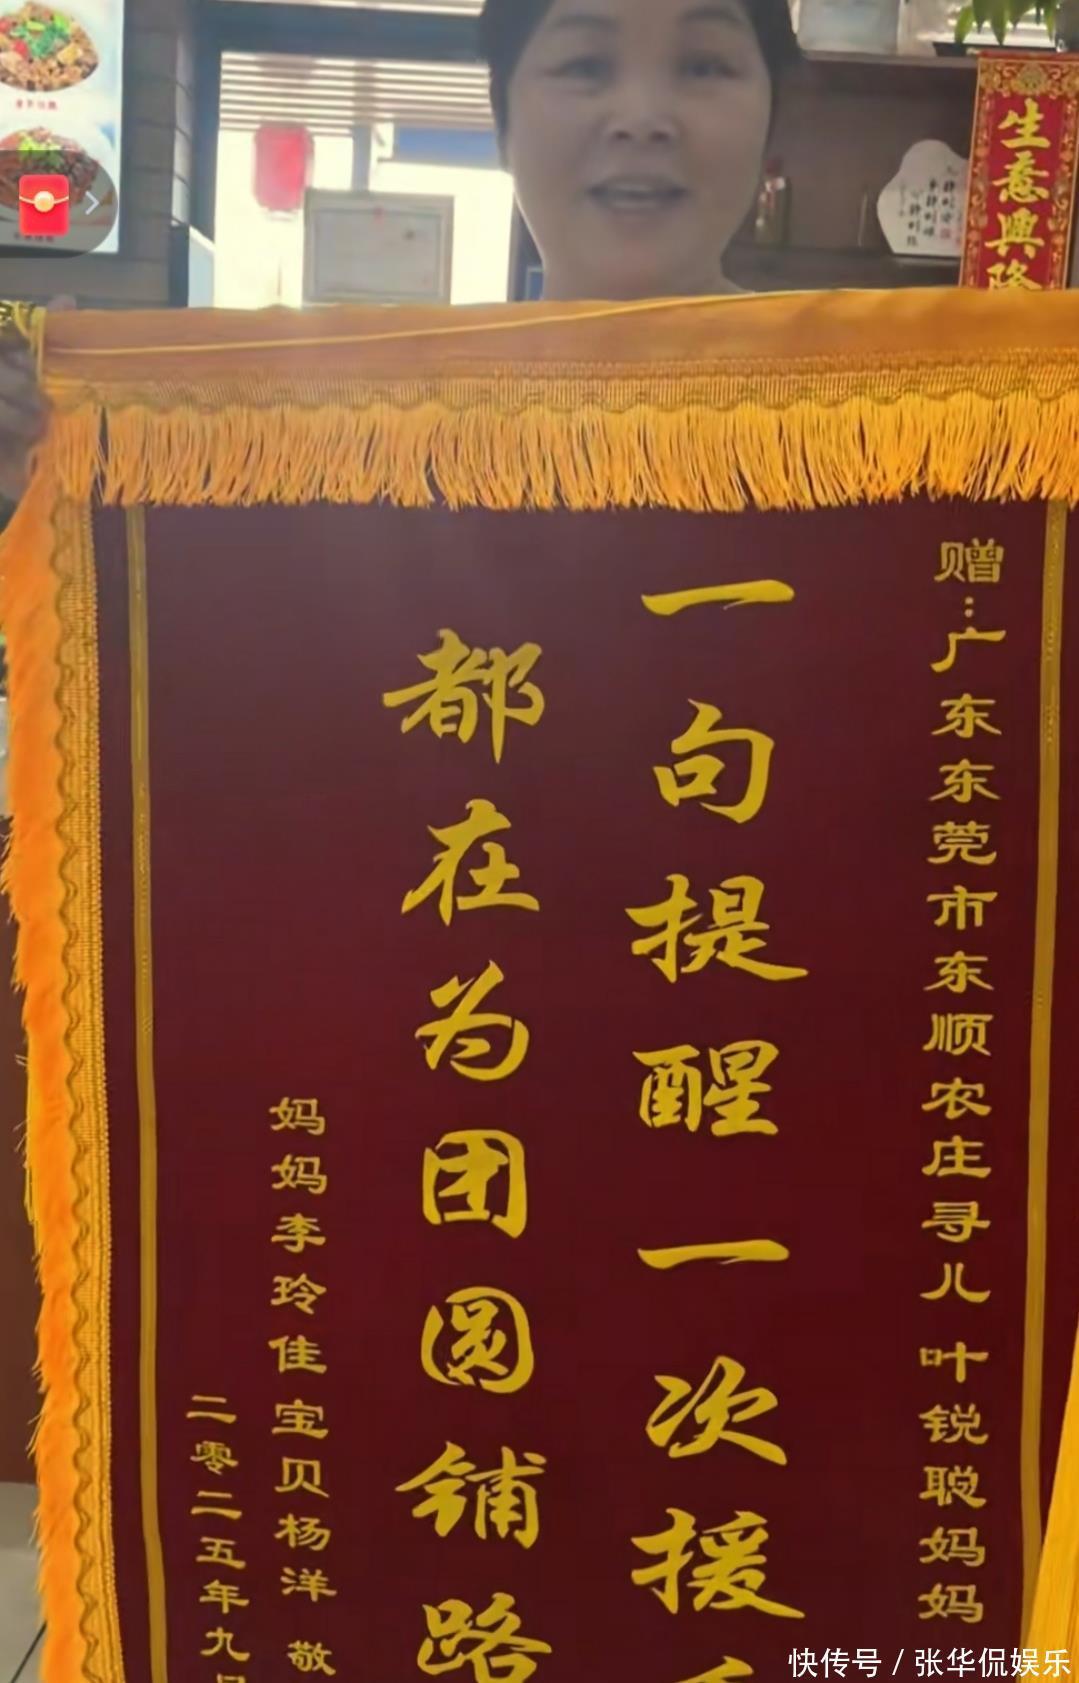 生意興隆
赠:广东东莞市东顺农庄寻儿 叶锐聪妈妈
一句提醒一次援
都在为团圆铺路
妈妈李玲佳宝贝杨洋 敬
二零二五年九月
快传号 / 张华侃娱乐